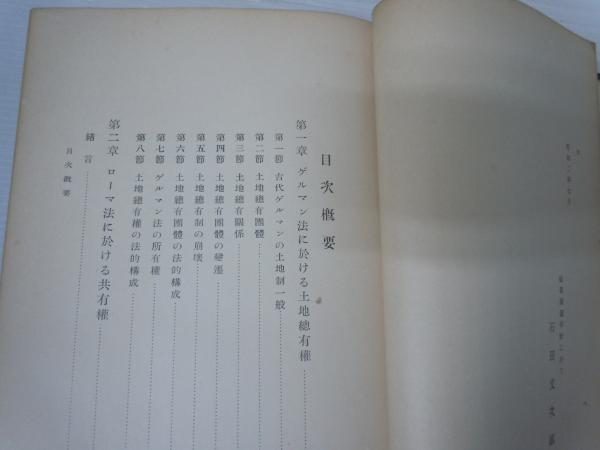 石田文次郎
目次概要
第一章 ゲルマン法に於ける土地總有權
第一節 古代ゲルマンの土地制一般
第二節 土地總有團體
第三節 土地總有關係
第四節 土地總有團體の變遷
第五節 土地總有制の崩壊
第六節 土地總有團體の法的構成
第七節 ゲルマン法の所有權
第八節 土地總有權の法的構成
第二章 ローマ法に於ける共有權
緒言
目次概要